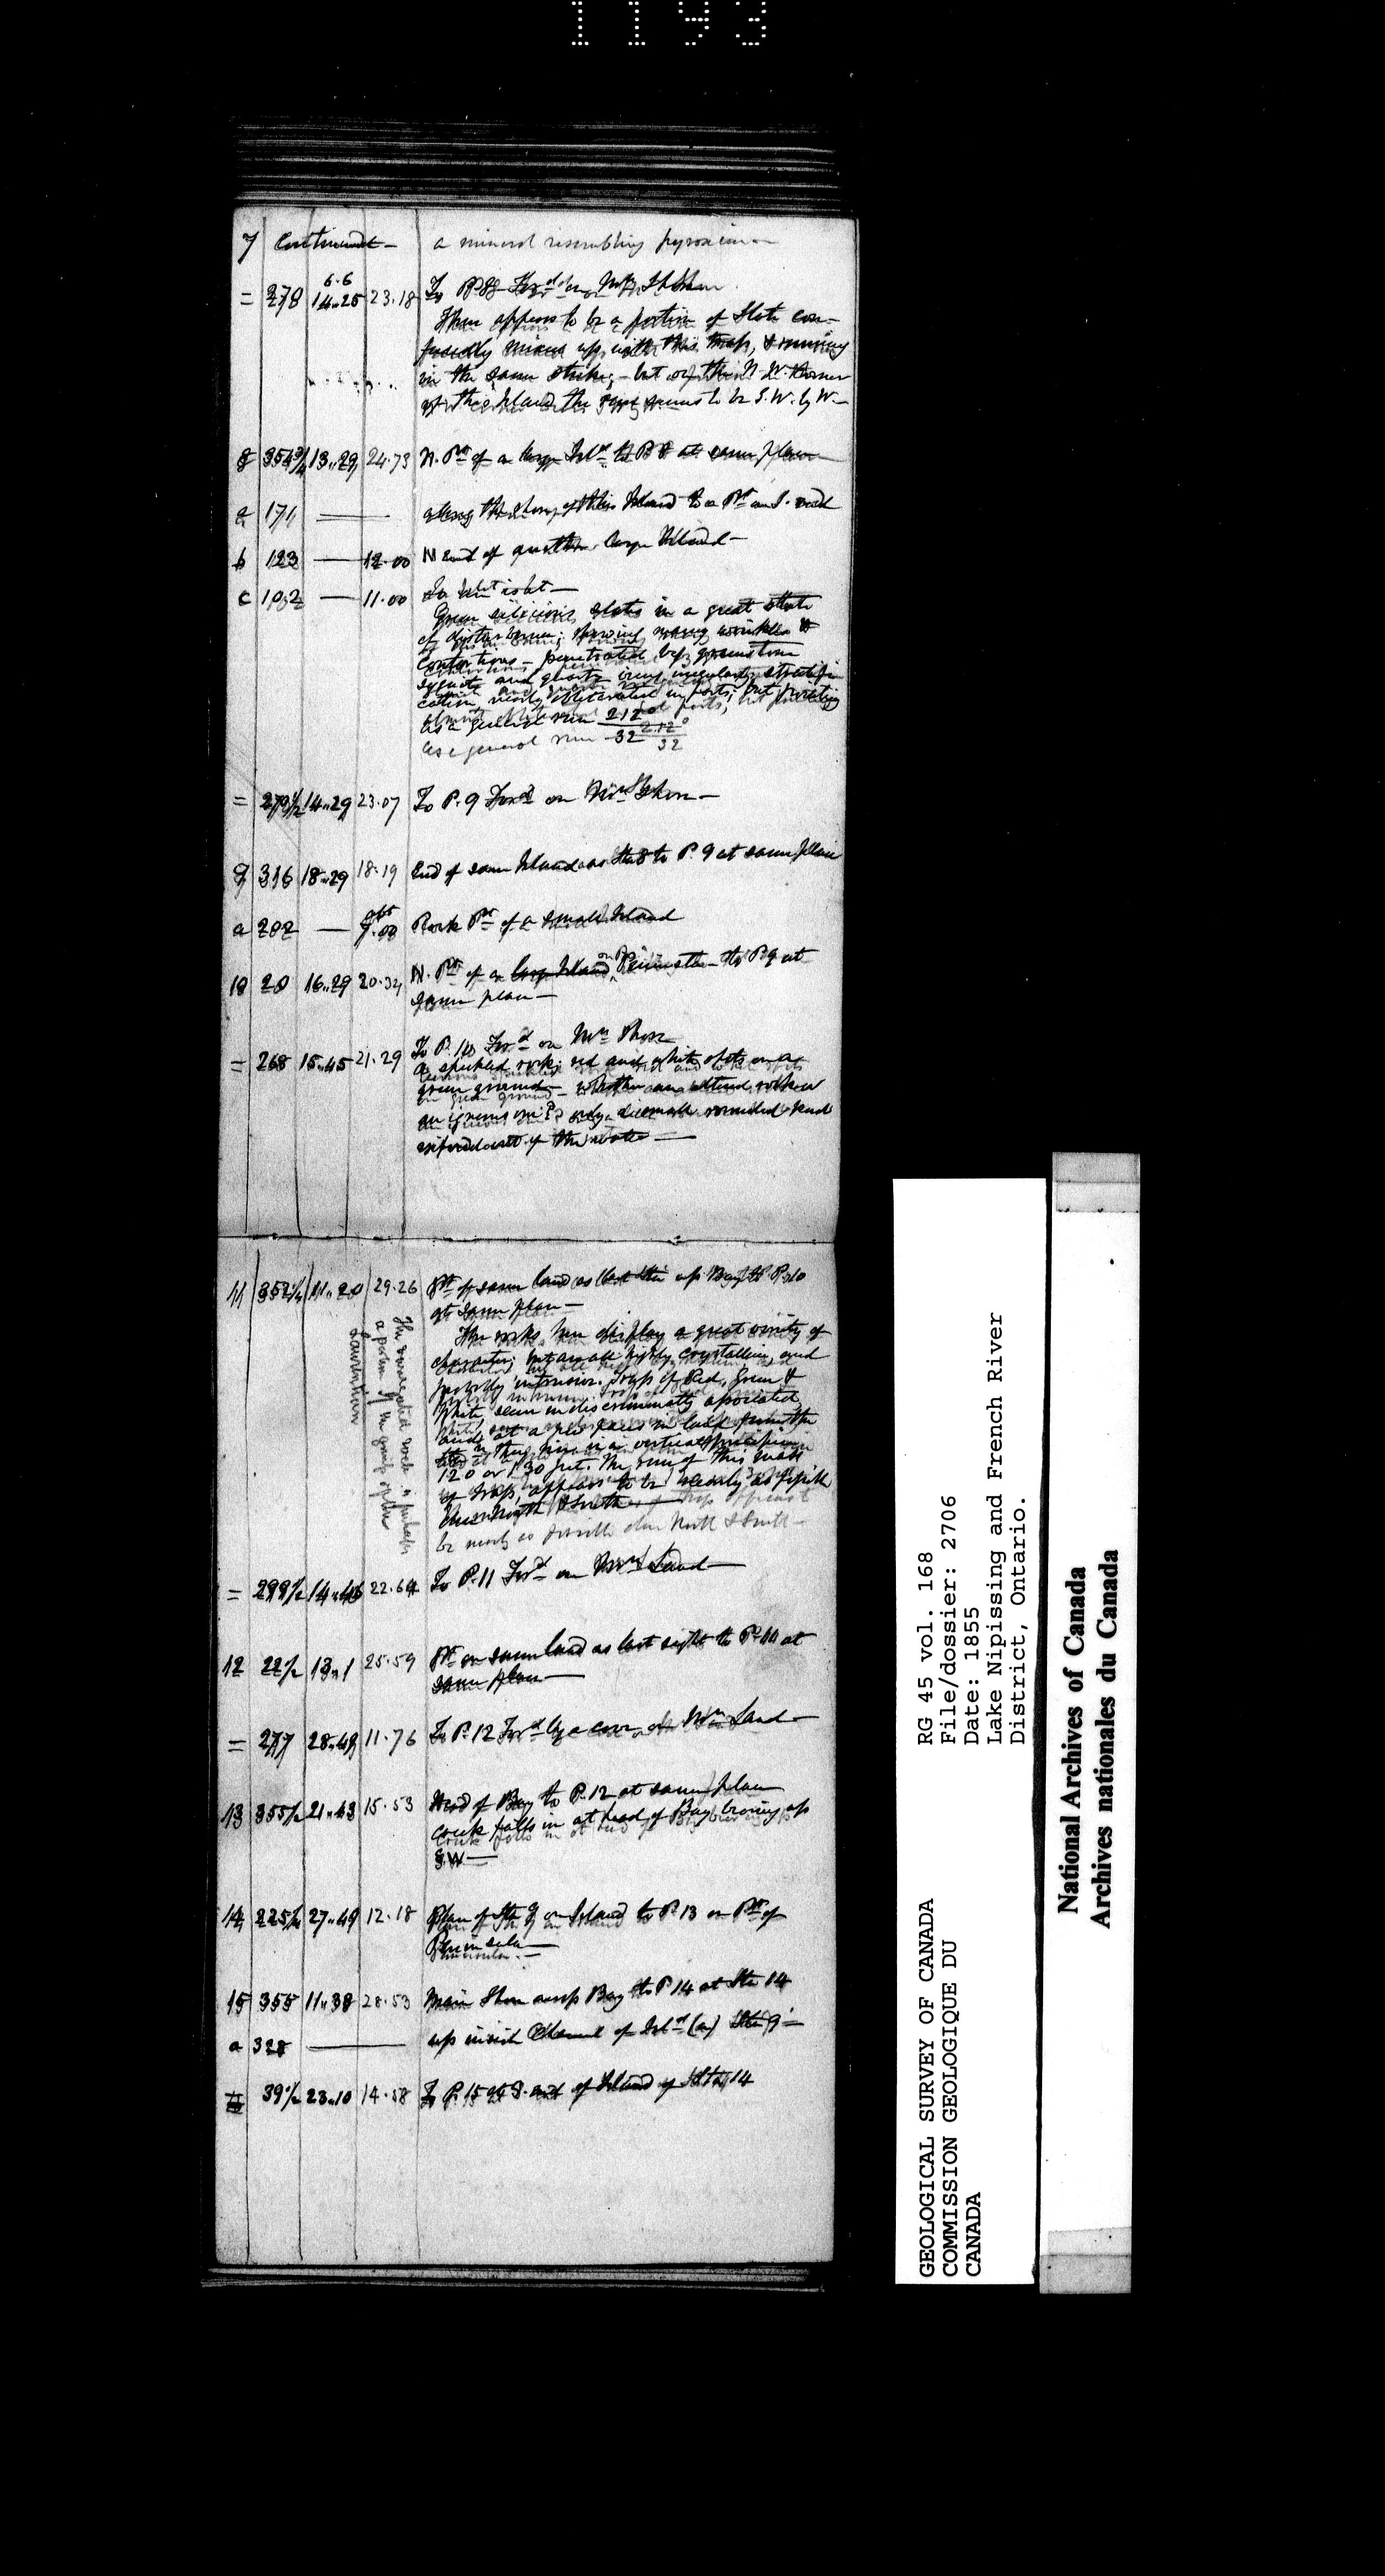 1193
7 Continued — a mineral resembling pyroxene
= 278 6.6 14.25 23.18 To P. 8 For.d on Mn Shore
There appears to be a portion of Slate con-
fusedly mixed up with this trap, & running
in the same strike; – but on the N.W. Corner
of this Island the seems to be S.W. by W–
8 354 3/4 13.29 24.73 N. Pt of a large Isld to P. 8 at same place
a 171 —— along the shore of this Island to a Pt and S. end
b 123 — 12.00 N end of another large Island –
c 192 — 11.00 To islet –
Green silicious slates in a great state
of disturbance; showing many wrinkles &
contortions – penetrated by greenstone
syenite and quartz irregularly, stratifi-
cation, nearly obliterated in parts; but
as a general run 212°/32
as a general run 212°/32
= 270 1/2 14.29 23.07 To P. 9 For.d on Mn Shore –
9 316 18.29 18.19 End of same Island as Sta 8 to P. 9 at same place
a 282 — abt 9.00 Rock Pt of a small Island
10 20 16.29 20.34 N. Pt of a large Island or Peninsula to P 9 at
same place –
= 268 15.45 21.29 To P. 10 For.d on Mn Shore
a speckled rock; red and white spots on a
green ground – whether an altered rock or
an igneous one? only a small rounded head
exposed out of the water ——
11 352 1/4 11.20 29.26 Pt of same land as last Sta up Bay to P. 10
at same place –
The rocks here display a great variety of
character; but are all highly crystalline, and
probably intrusive. Traps of Red, Green &
White, seem indiscriminately associated,
and at a few paces in land from the
they rise in a vertical precipice
120 or 130 feet. The run of this mass
of Trap, appears to be nearly as possible
due North & South
be nearly as possible due North & South –
The variegated rock is perhaps
a portion of the group of the
Laurentian
= 299 1/2 14.46 22.64 To P. 11 For.d on Mn Land –
12 22 1/2 13.1 25.59 Pt on same land as last sight to P. 11 at
same place ——
= 277 28.49 11.76 To P. 12 For.d by a cove on Mn Land –
13 355 1/2 21.43 15.53 Head of Bay to P. 12 at same place
creek falls in at head of Bay bearing up
S.W —
14 225 1/2 27.49 12.18 Place of Sta 9 on Island to P. 13 on Pt of
Peninsula —
15 355 11.38 28.53 Main Shore across Bay to P 14 at Sta 14
a 328 —— up inside Channel of Isld (a) Sta 9 –
39 1/2 23.10 14.58 To P. 15 at S. end of Island of Sta 14
GEOLOGICAL SURVEY OF CANADA
COMMISSION GEOLOGIQUE DU
CANADA
RG 45 vol. 168
File/dossier: 2706
Date: 1855
Lake Nipissing and French River
District, Ontario.
National Archives of Canada
Archives nationales du Canada